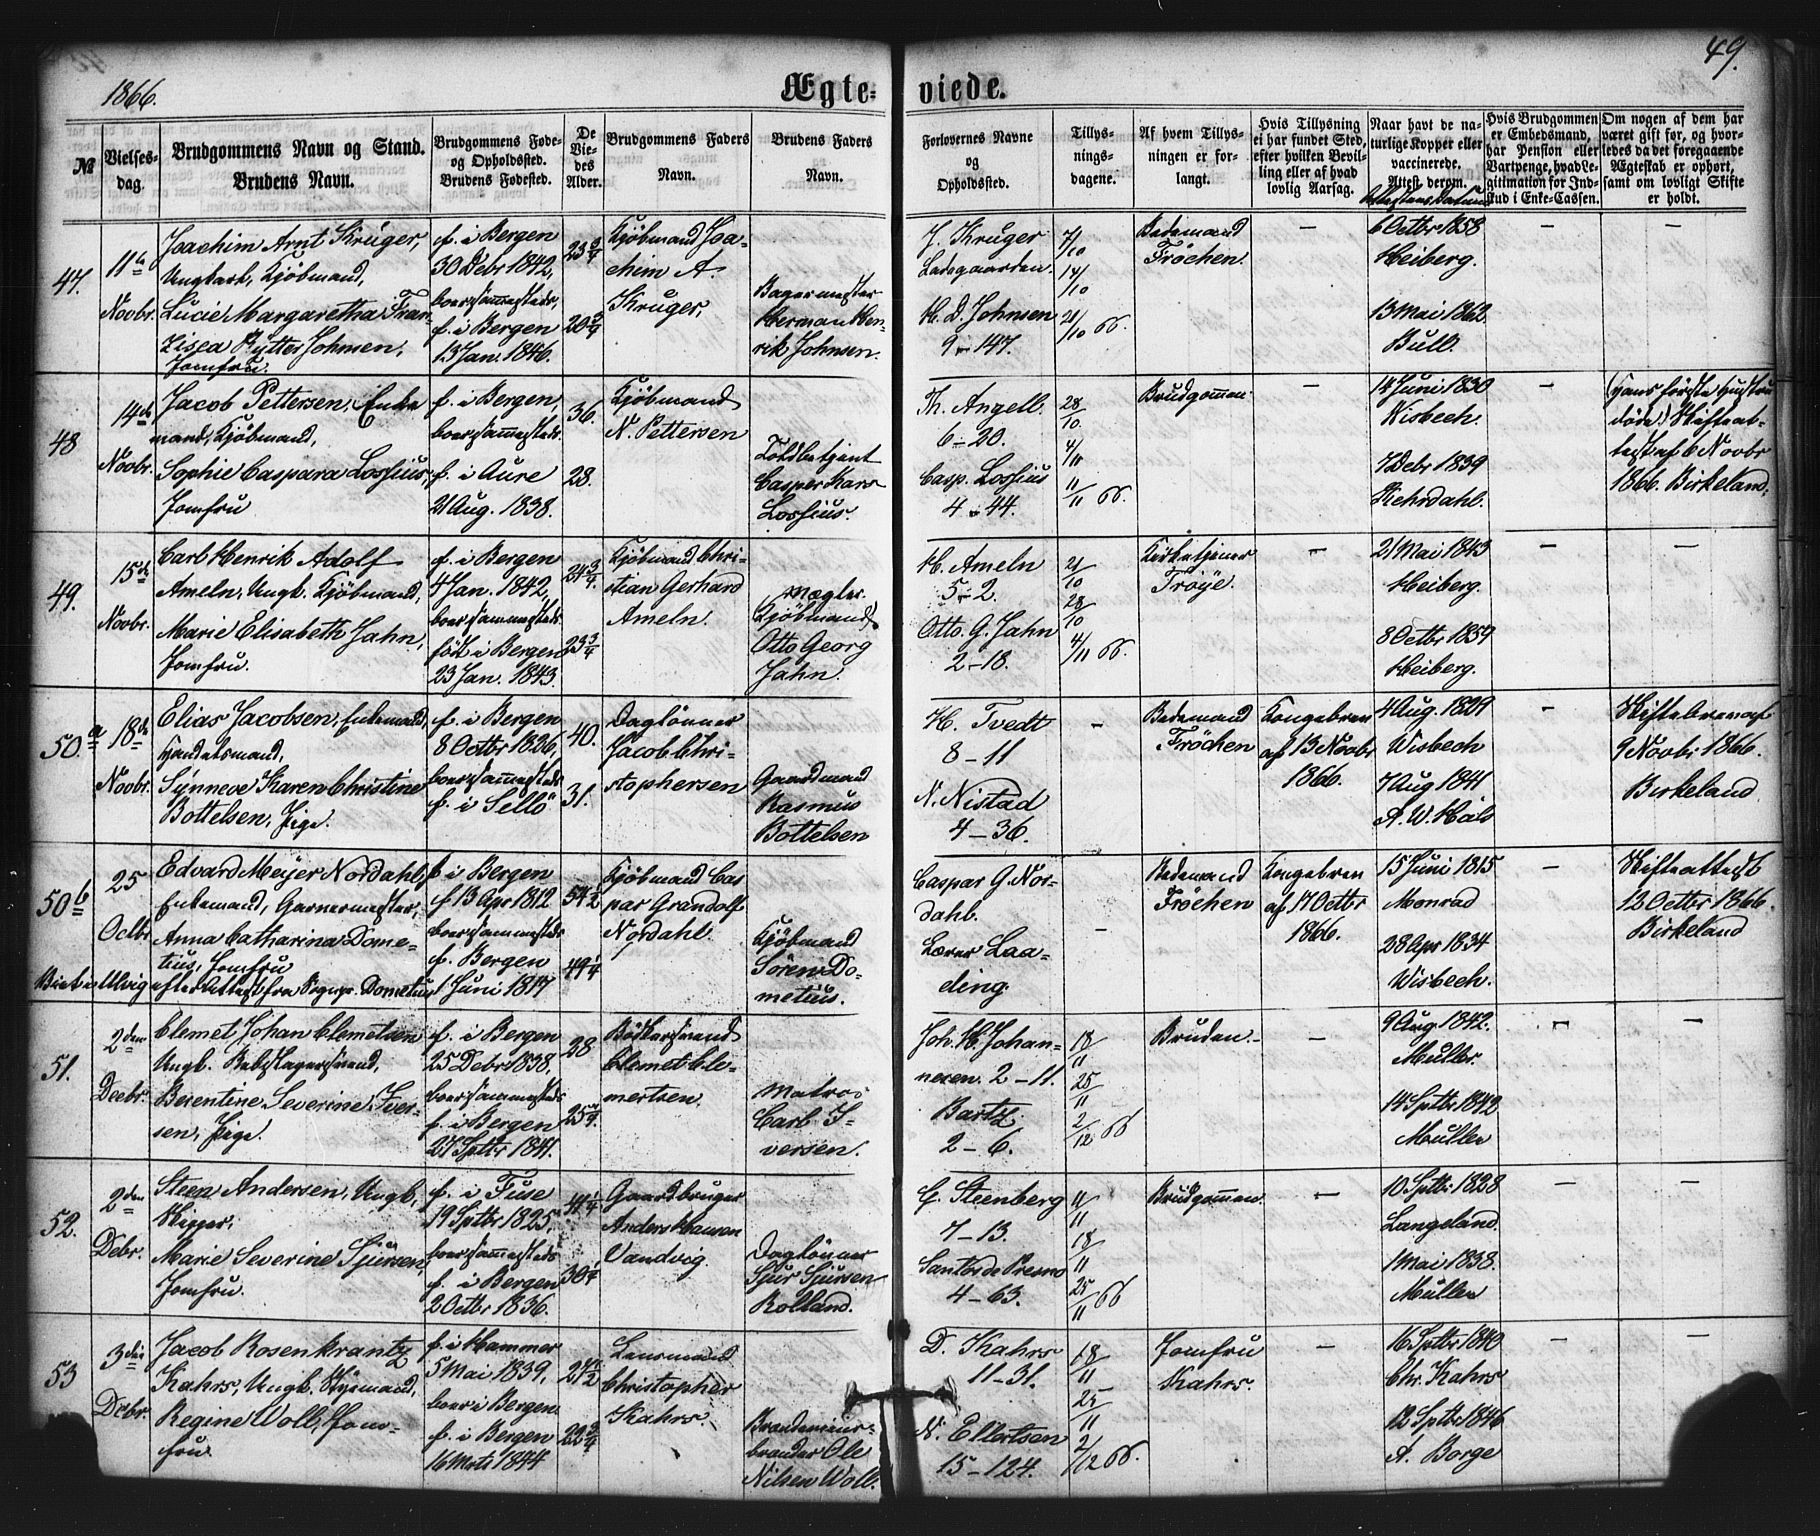 1866.
Ægte-
viede.
49.
№
Vielses-
dag.
Brudgommens Navn og Stand.
Brudens Navn.
Brudgommens Føde-
og Opholdssted.
Brudens Fødested.
De
Vie-
des
Alder.
Brudgommens Faders
Navn.
Brudens Faders
Navn.
Forlovernes Navne
og
Opholdssted.
Tillys-
nings-
dagene.
Af hvem Tillys-
ningen er for-
langt.
Hvis Tillysning
ei har fundet Sted,
efter hvilken Bevil-
ling eller af hvad
lovlig Aarsag.
Naar havt de na-
turlige Kopper eller
vaccinerede.
Attest derom.
Attestens Datum
Hvis Brudgommen
er Embedsmand,
har Pension eller
Vartpenge, hvad Le-
gitimation for Ind-
skud i Enke-Cassen.
Om nogen af dem har
været gift før, og hvor-
ledes da det foregaaende
Ægteskab er ophørt,
samt om lovligt Skifte
er holdt.
47.
11te
Novbr.
Joachim Arnt Krüger,
Ungkarl, Kjöbmand,
Lucie Margaretha Fran-
zisca Rytter Johnsen,
Jomfru.
f. i Bergen
30 Debr 1842,
boer sammesteds,
f. i Bergen
13 Jan. 1846.
23 3/4
20 3/4
Kjöbmand Joa-
chim A.
Krüger,
Bagermester
Herman Hen-
rik Johnsen.
J. Krüger
Ladegaarden.
H. D. Johnsen
9-147.
7/10
14/10
21/10 66.
Bedemand
Fröchen.
6 Octbr 1858
Heiberg.
13 Mai 1862.
Bull.
48
14de
Novbr.
Jacob Pettersen, Enke
mand, Kjöbmand,
Sophie Caspara Lossius,
Jomfru
f. i Bergen,
boer sammesteds.
f. i Aure
21 Aug. 1838.
36.
28.
Kjöbmand
N. Pettersen
Toldbetjent
Casper Hars
Lossius.
Th. Angell.
6-20.
Casp. Lossius
4-44.
28/10.
4/11
11/11 66.
Brudgommen.
-
14 Juni 1830
Wisbech.
7 Debr 1839
Rehrdahl.
-
(Hans förste Hustru
döde) Skifteat-
test af 6 Novbr
1866. Birkeland.
49.
15de
Novbr.
Carl Henrik Adolf
Ameln, Ungk. Kjöbmand,
Marie Elisabeth Jahn,
Jomfru.
f. i Bergen
4 Jan. 1842,
boer sammesteds
föd i Bergen
23 Jan. 1843.
24 3/4.
23 3/4
Kjöbmand Chri-
stian Gerhard
Ameln.
Mægler
Kjöbmand
Otto Georg
Jahn.
H. Ameln
5-2.
Otto. G. Jahn
2-18.
21/10
28/10
4/11 66.
Kirketjener
Tröye.
-
21 Mai 1843
Heiberg.
8 Octbr 1859
Heiberg.
-
-
50.a
18de
Novbr.
Elias Jacobsen, Enkemand,
Handelsmand,
Synneve Karen Christine
Bottelsen, Pige.
f. i Bergen
8 Octbr 1826,
boer sammesteds
f. i Sellö
40.
31.
Daglönner
Jacob Chri-
stophersen
Gaardmand
Rasmus
Bottelsen
H. Tvedt
8-11
N. Nistad
4-36.
-
Bedemand
Fröchen
Kongebrev
af 13 Novbr
1866.
4 Aug. 1829
Wisbech
7 Aug 1841
A. W. Hals
-
Skiftebrev af
9 Novbr 1866.
Birkeland
50b
25
Octbr
Edvard Meyer Nordahl,
Enkemand, Garvermester,
Anna Catharina Dome-
tius, Jomfru
Viet i Ulvig efter Attest fra Sognepr. Dometius
f i Bergen
f 13 Apr 1812
boer sammesteds
f. Bergen
1 Juni 1817
54 1/2
49 1/4
Kjöbmand Cas
par Grandolf
Nordahl.
Kjöbmand
Sören Do-
metius.
Caspar G. Nor-
dahl.
Lærer Laa-
ding.
-
Bedemand
Fröchen
Kongebrev
af 17 Octbr
1866.
15 Juni 1815
Monrad
28 Apr 1834
Wisbech.
-
Skifteattest
12 Octbr 1866.
Birkeland
51.
2den
Decbr.
Clemet Johan Clemetsen
Ungk. Rebslagersvend,
Berentine Severine Iver-
sen, Pige.
f. i Bergen
25 Debr 1838,
boer sammesteds
f. i Bergen
27 Septbr 1841.
28
25 1/4.
Bödkersvend
Clemet Cle-
metsen.
Matros
Carl I-
versen.
Joh. H. Johan-
nesen. 2-11.
Bartz.
2-6.
18/11
25/11
2/12 66
Bruden.
-
9 Aug 1842.
Müller.
14 Sptbr 1842
Müller
-
-
52.
2den
Debr.
Steen Andersen, Ungk,
Skipper,
Marie Severine Sjursen,
Jomfru.
f. i Fuse
19 Sptbr 1825,
boer sammesteds
f. i Bergen
2 Octbr 1836.
41 1/4
30 1/4
Gaardbruger
Anders Hansen
Vandvig.
Daglönner
Sjur Sjursen
Rolland.
C. Steenberg
7-13.
Santos de Presno
4-63.
11/11
18/11
25/11 66
Brudgommen.
-
10 Sptbr 1828
Langeland.
1 Mai 1838.
Müller
-
-
53
3die
Debr.
Jacob Rosenkrantz
Kahrs, Ungk. Styrmand,
Regine Woll, Jom-
fru
f. i Hammer
5 Mai 1839,
boer i Bergen
f. i Bergen
16 Marts 1844
27 1/2
22 3/4
Lensmand
Christopher
Kahrs.
Brændeviins-
brænder Ole
Nilsen Woll.
D. Kahrs
11-31.
N. Ellertsen
15-124.
18/11
25/11
2/12 66.
Jomfru
Kahrs.
-
16 Sptbr 1840
Chr. Kahrs
12 Sptbr 1846
A. Borge
-
-